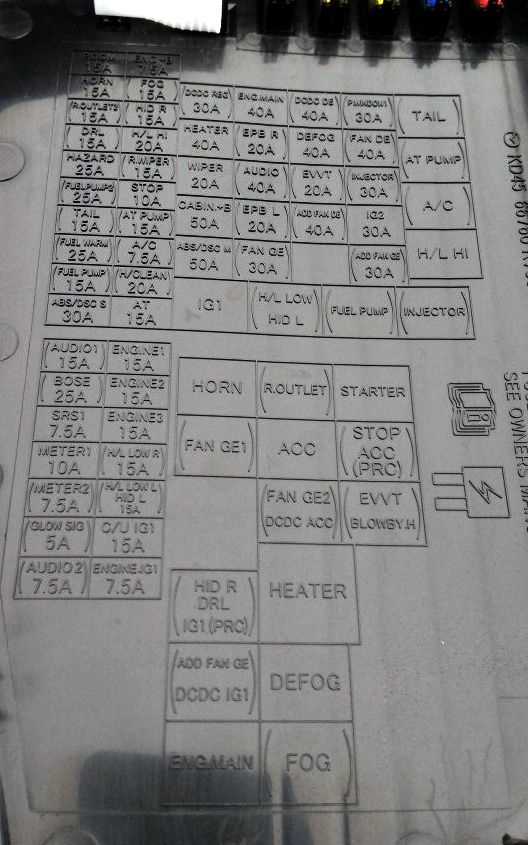 ROOM 15A ENG.+B 7.5A
HORN 15A (FOG 15A)
(R.OUTLET3 15A) (HID R 15A)
(DRL 15A) H/L HI 20A
HAZARD 25A (R.WIPER 15A)
(FUEL PUMP2 25A) STOP 10A
(TAIL 15A) (AT PUMP 15A)
(FUEL WARM 25A) (A/C 7.5A)
(FUEL PUMP 15A) (H/CLEAN 20A)
ABS/DSC S 30A AT 15A
(DCDC REG 30A) ENG.MAIN 40A (DCDC DE 40A) (P.WINDOW1 30A) (TAIL)
HEATER 40A (EPB R 20A) DEFOG 40A (FAN DE 40A) (AT PUMP)
WIPER 20A (AUDIO 40A) (EVVT 20A) (INJECTOR 30A) (A/C)
CABIN.+B 50A (EPB L 20A) (ADD FAN DE 40A) IG2 30A
ABS/DSC M 50A (FAN GE 30A) (ADD FAN GE 30A) H/L HI
IG1 (H/L LOW HID L) (FUEL PUMP) (INJECTOR)
(AUDIO1 15A) ENGINE1 15A
(BOSE 25A) ENGINE2 15A
SRS1 7.5A ENGINE3 15A
METER1 10A (H/L LOW R 15A)
(METER2 7.5A) (H/L LOW L HID L 15A)
(GLOW SIG 5A) C/U IG1 15A
(AUDIO2 7.5A) ENGINE.IG1 7.5A
HORN (R.OUTLET) STARTER
(FAN GE1) ACC (STOP ACC (PRC))
(FAN GE2 DCDC ACC) (EVVT BLOWBY.H)
(HID R DRL IG1(PRC)) HEATER
(ADD FAN GE DCDC IG1) DEFOG
ENG.MAIN (FOG)
KD45
SEE OWNERS